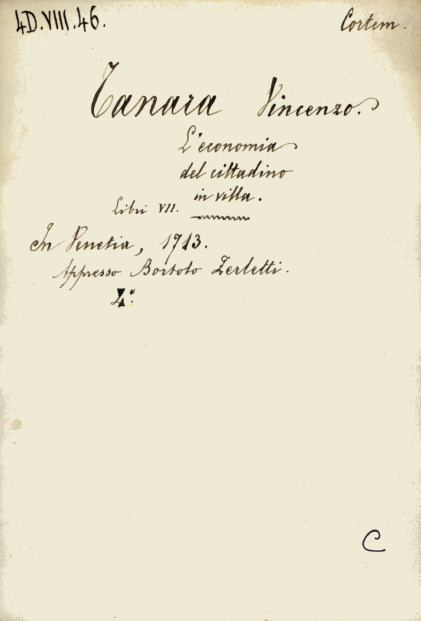 4D.VIII.46.
Cortem.
Tanara Vincenzo.
L'economia
del cittadino
in villa.
Libri VII.
In Venetia, 1713.
Appresso Bortolo Zerletti.
4°.
C